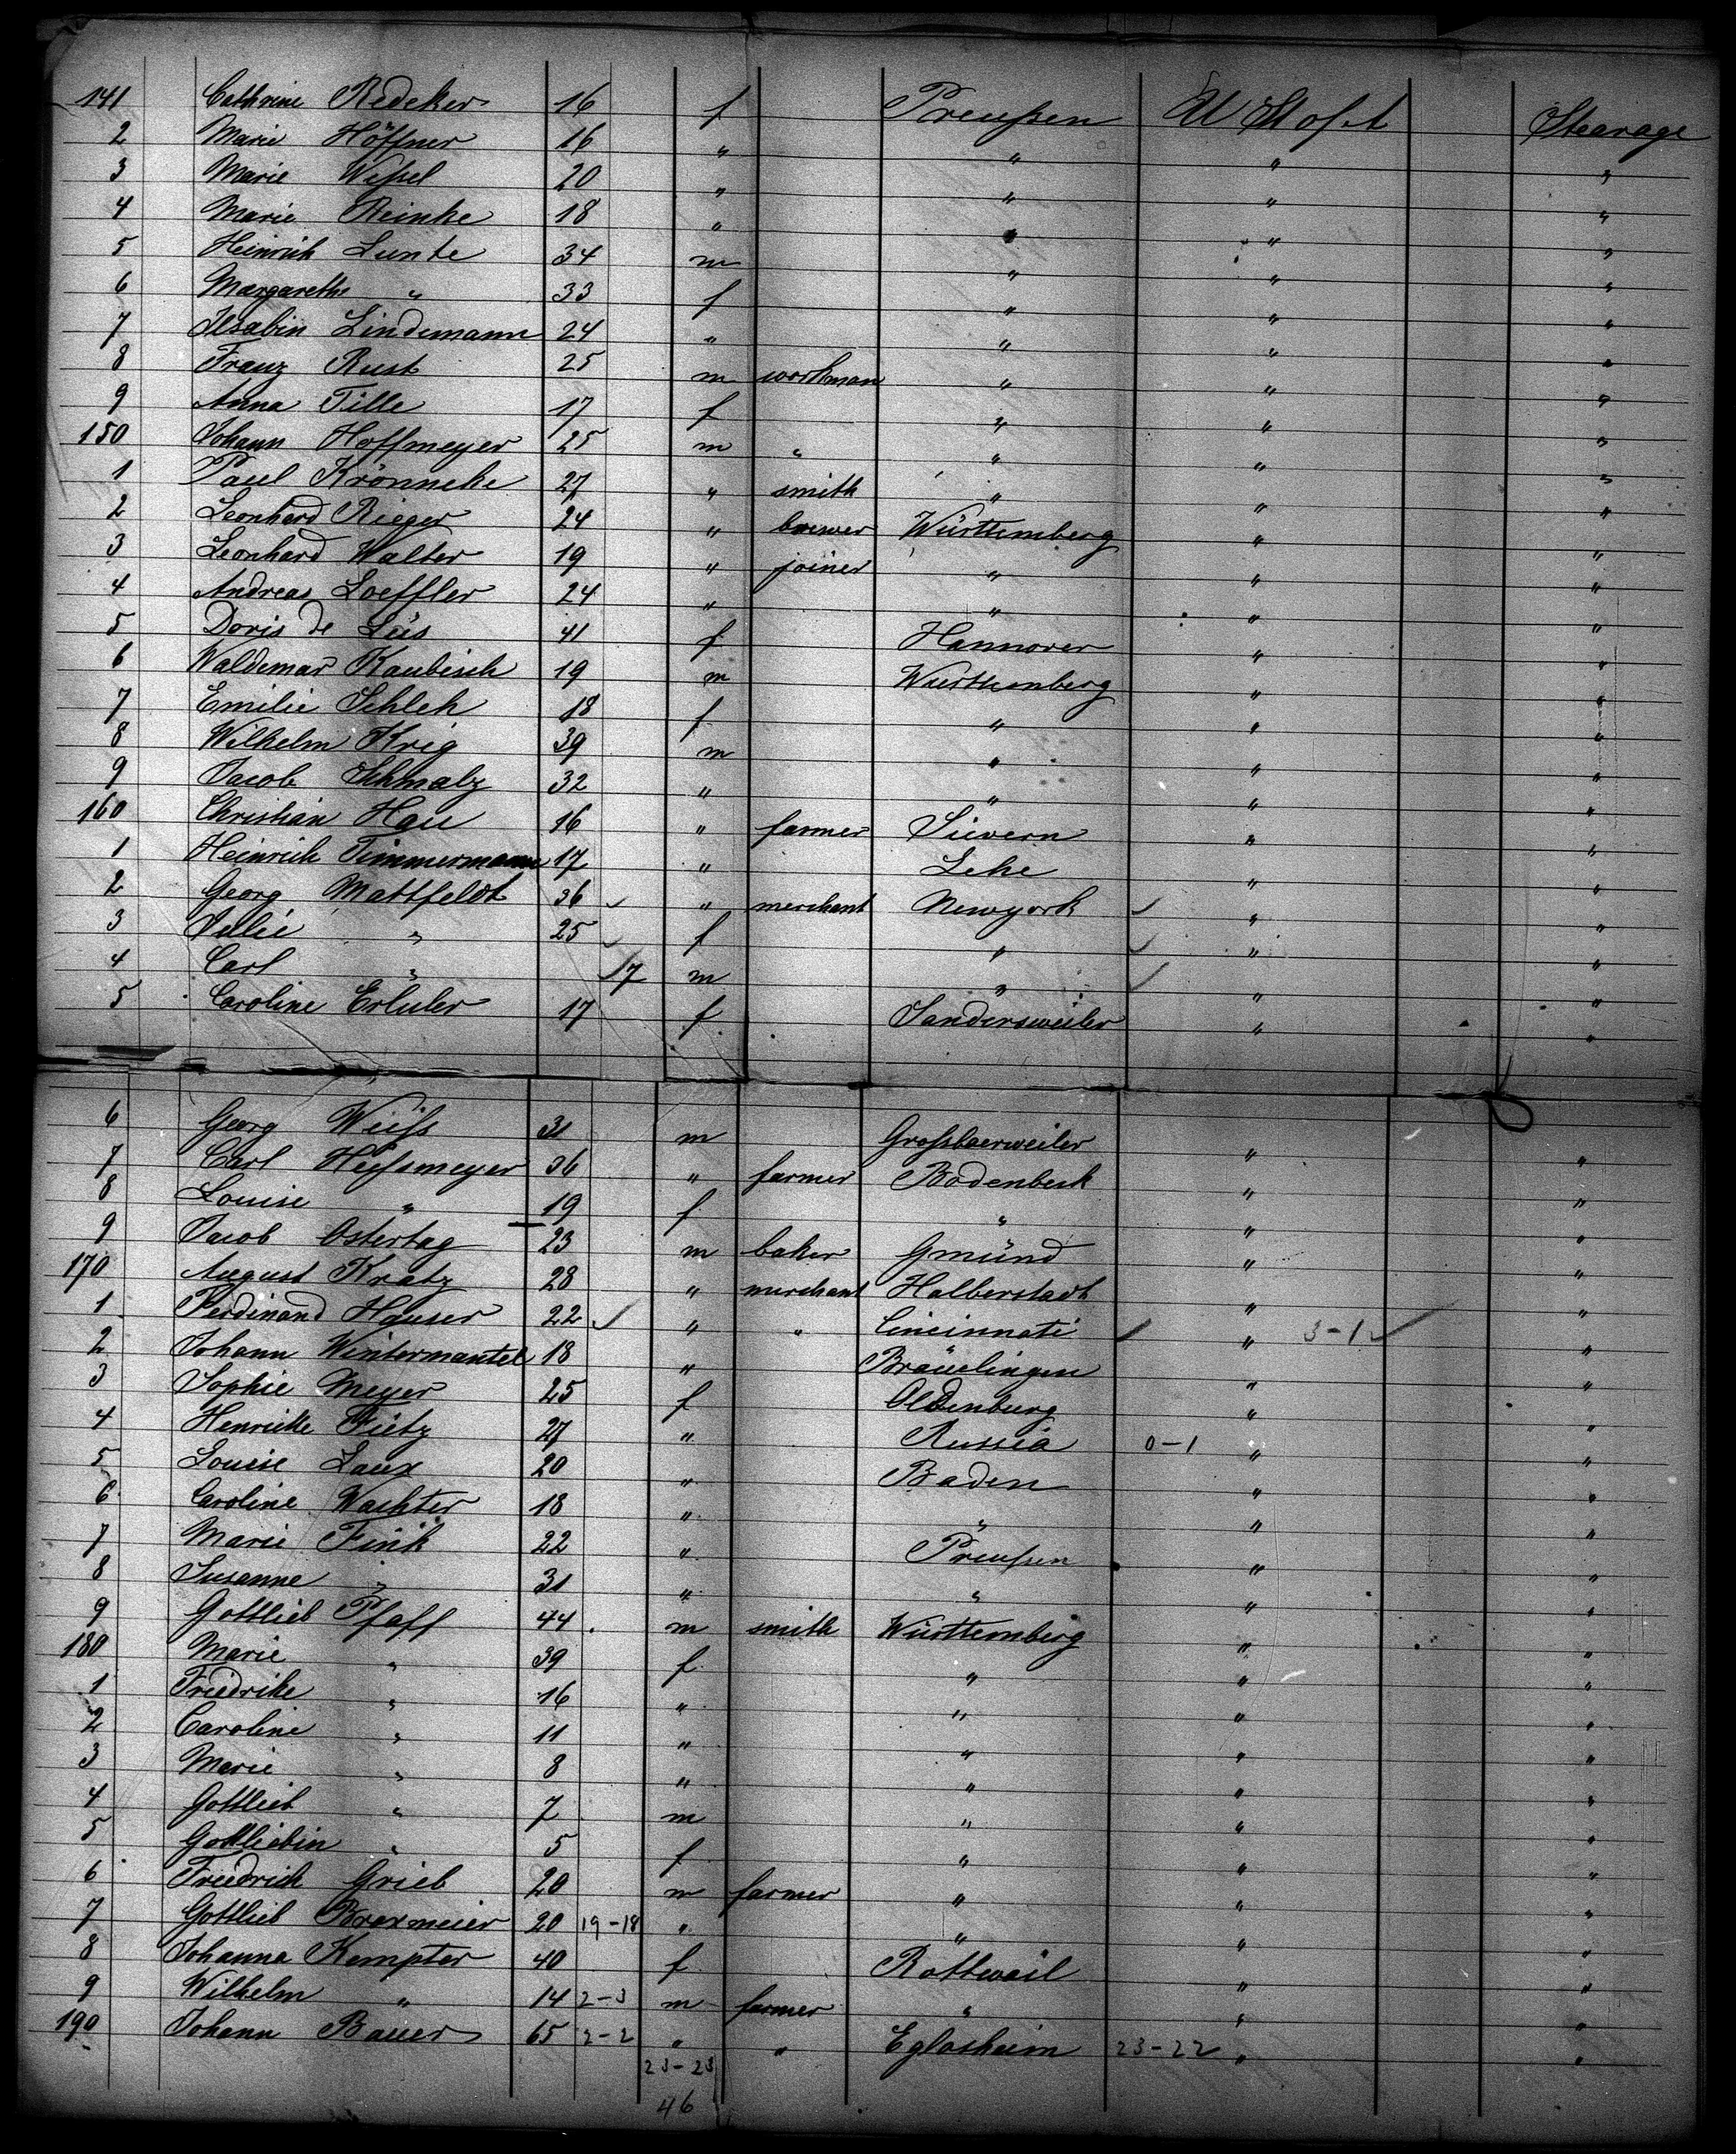 141 Cathrine Redeker 16 f Preußen U Staat Stearage
2 Marie Höffner 16 " " " "
3 Marie Weßel 20 " " " "
4 Marie Reinke 18 " " " "
5 Heinrich Lunte 34 m " " "
6 Margarethe " 33 f " " "
7 Ilsabin Lindemann 24 " " " "
8 Franz Rust 25 m workman " " "
9 Anna Tille 17 f " " "
150 Johann Hoffmeyer 25 m " " " "
1 Paul Krönneke 27 " smith " " "
2 Leonhard Rieger 24 " brewer Württemberg " "
3 Leonhard Walter 19 " joiner " " "
4 Andreas Loeffler 24 " " " "
5 Doris de Lüs 41 f Hannover " "
6 Waldemar Kaubisch 19 m Wuerttemberg " "
7 Emilie Schleh 18 f " " "
8 Wilhelm Krig 39 m " " "
9 Jacob Schmalz 32 " " " "
160 Christian Hau 16 " farmer Sievern " "
1 Heinrich Timmermann 17 " Lehe " "
2 Georg Mattfeldt 36 " merchant Newyork " "
3 Julie " 25 f " " "
4 Carl " 17 m " " "
5 Caroline 17 f Sandersweiler " "
6 Georg Weiß 31 m " "
7 Carl Heßsmeyer 36 " farmer Bodenbeck " "
8 Louise " 19 f " " "
9 Jacob Ostertag 23 m baker Gmünd " "
170 August Kratz 28 " merchant Halberstadt " "
1 Ferdinand Hauser 22 " " Cincinnati " 3-1 "
2 Johann Wintermantel 18 " Bräuelingen " "
3 Sophie Meyer 25 f Oldenburg " "
4 Henriette Fietz 27 " Russia 0-1 " "
5 Louise Laux 20 " Baden " "
6 Caroline Wachter 18 " " " "
7 Marie Fink 22 " Preußen " "
8 Susanne " 31 " " " "
9 Gottlieb Pfaff 44 m smith Württemberg " "
180 Marie " 39 f " " "
1 Friedrike " 16 " " " "
2 Caroline " 11 " " " "
3 Marie " 8 " " " "
4 Gottlieb " 7 m " " "
5 Gottliebin " 5 f " " "
6 Friedrich Grieb 20 m farmer " " "
7 Gottlieb Braxmeier 20 19-18 " " " "
8 Johanna Kempter 40 f Rottweil " "
9 Wilhelm " 14 2-3 m farmer " " "
190 Johann Bauer 65 2-2 " " Eglosheim 23-22 " "
23-23
46